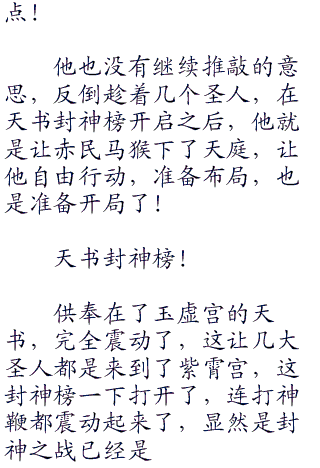 点！
他也没有继续推敲的意
思，反倒趁着几个圣人，在
天书封神榜开启之后，他就
是让赤民马猴下了天庭，让
他自由行动，准备布局，也
是准备开局了！
天书封神榜！
供奉在了玉虚宫的天
书，完全震动了，这让几大
圣人都是来到了紫霄宫，这
封神榜一下打开了，连打神
鞭都震动起来了，显然是封
神之战已经是